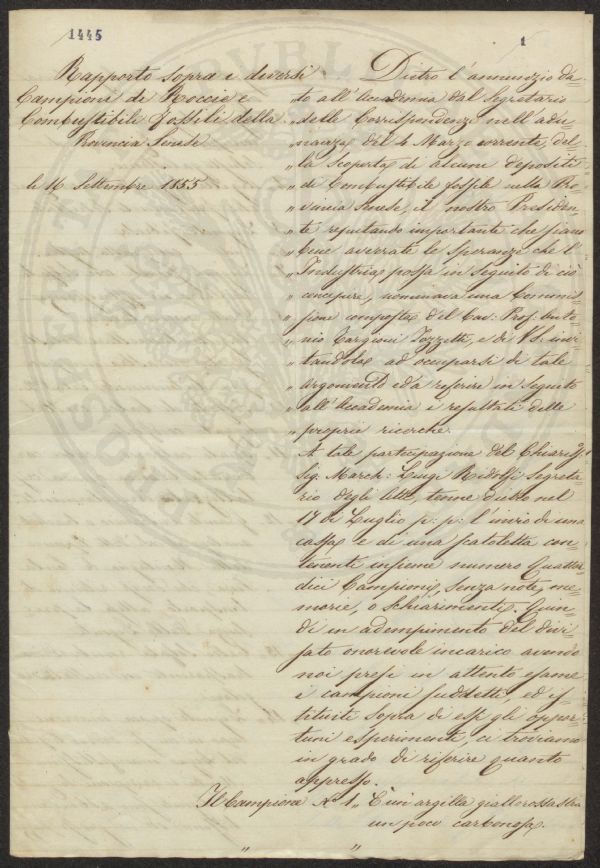 1445
1
Rapporto sopra i diversi
Campioni di Roccie e
Combustibile fossili della
Provincia Senese
li 16 Settembre 1855
Dietro l'annunzio da=
„to all'Accademia dal Segretario
„delle Corrispondenze nell'adu=
„nanza del 4 Marzo corrente, del=
„la scoperta di alcuni depositi
„di Combustibile fossile nella Pro=
„vincia Senese, il nostro Presiden=
„te reputando importante che siano
„bene avverate le speranze che l'
„Industria possa in seguito di ciò
„concepire, nominava una Commis=
„sione composta del Cav: Prof: Anto=
„nio Targioni Tozzetti, e di VS. invi=
„tandola ad occuparsi di tale
„argomento ed a referire in seguito
„all'Accademia i resultati delle
„proprie ricerche.
A tale partecipazione del Chiariss:
Sig. March: Luigi Ridolfi Segreta=
rio degli Atti, tenne dietro nel
17 di Luglio p: p: l'invio di una
cassa e di una scatoletta con=
tenente insieme numero Quattor=
dici Campioni, senza note, me=
morie, o schiarimenti. Quin=
di in adempimento del divi=
sato onorevole incarico avendo
noi presi in attento esame
i campioni suddetti, ed is=
tituiti sopra di essi gli oppor=
tuni esperimenti, ci troviamo
in grado di riferire quanto
appresso.
Il Campione No. 1 „ È un argilla giallorossastra
un poco carbonosa.
„ „